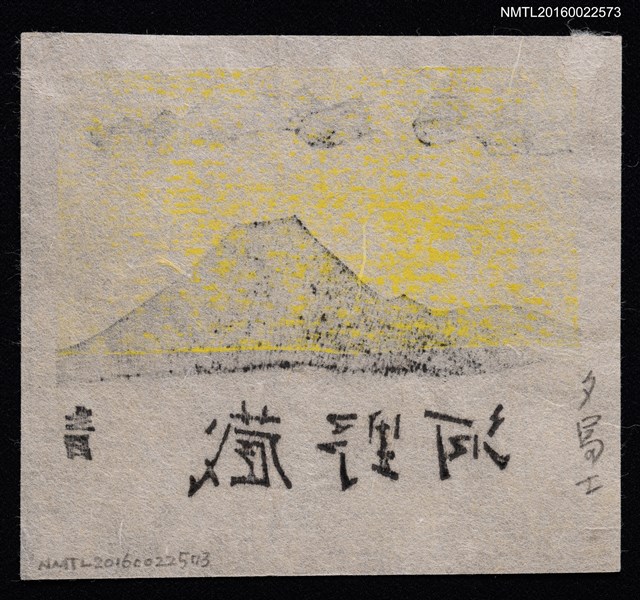 NMTL20160022573
河野藏書
夕冨士
NMTL20160022573